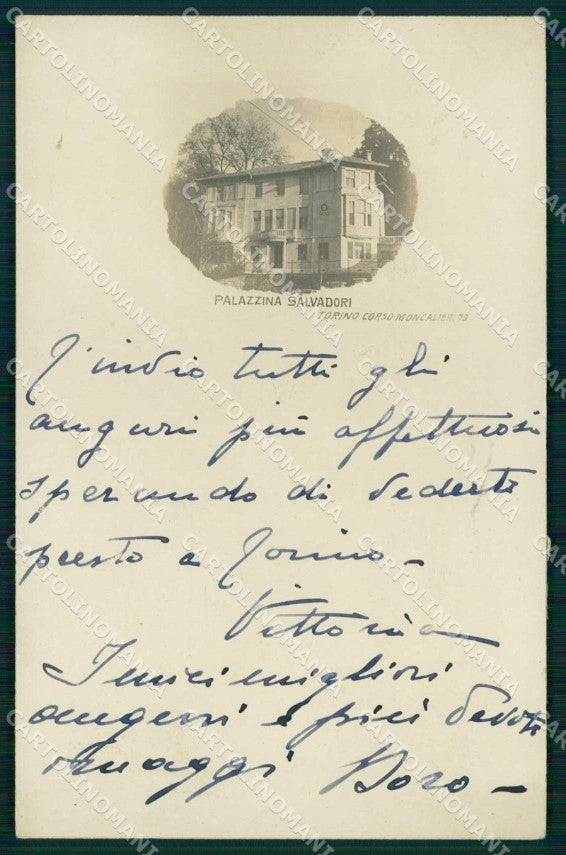 PALAZZINA SALVADORI
TORINO CORSO MONCALIERI 79
T'invio tutti gli
auguri più affettuosi
sperando di vederti
presto a Torino -
Vittoria
I miei migliori
auguri e più devoti
omaggi Doro -
CARTOLINOMANIA